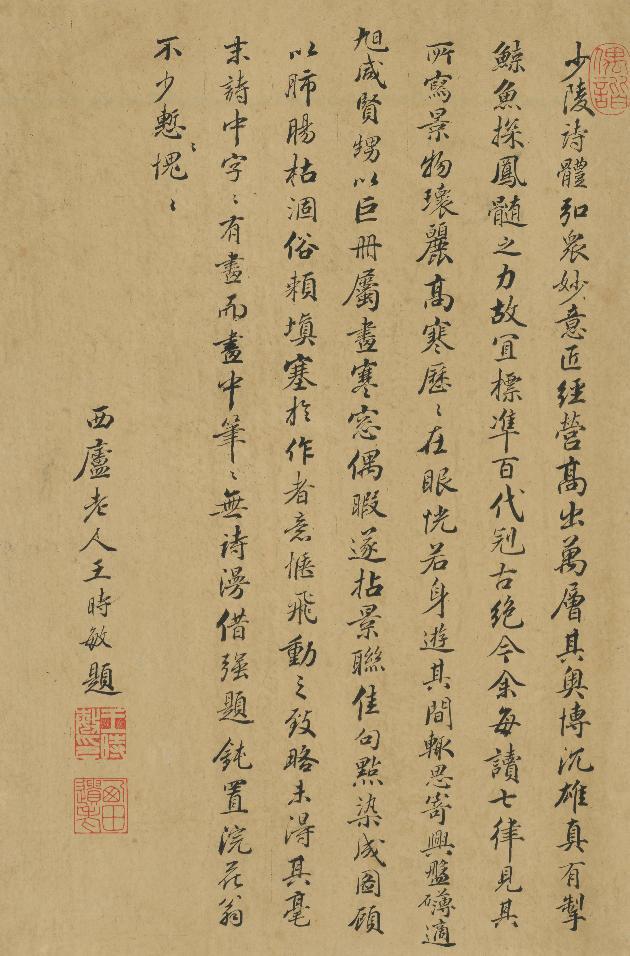 少陵詩體弘衆妙意匠經營高出萬層其奧博沉雄真有掣
鯨魚探鳳髓之力故宜標準百代冠古絕今余每讀七律見其
所寫景物瓌麗高寒歷〻在眼恍若身遊其間輒思寄興盤礴適
旭咸賢甥以巨冊屬畫寒窓偶暇遂拈景聯佳句點染成圖顧
以肺腸枯涸俗賴填塞於作者意愜飛動之致略未得其毫
末詩中字〻有畫而畫中筆〻無詩漫借強題鈍置浣花翁
不少慙愧〻〻
西廬老人王時敏題